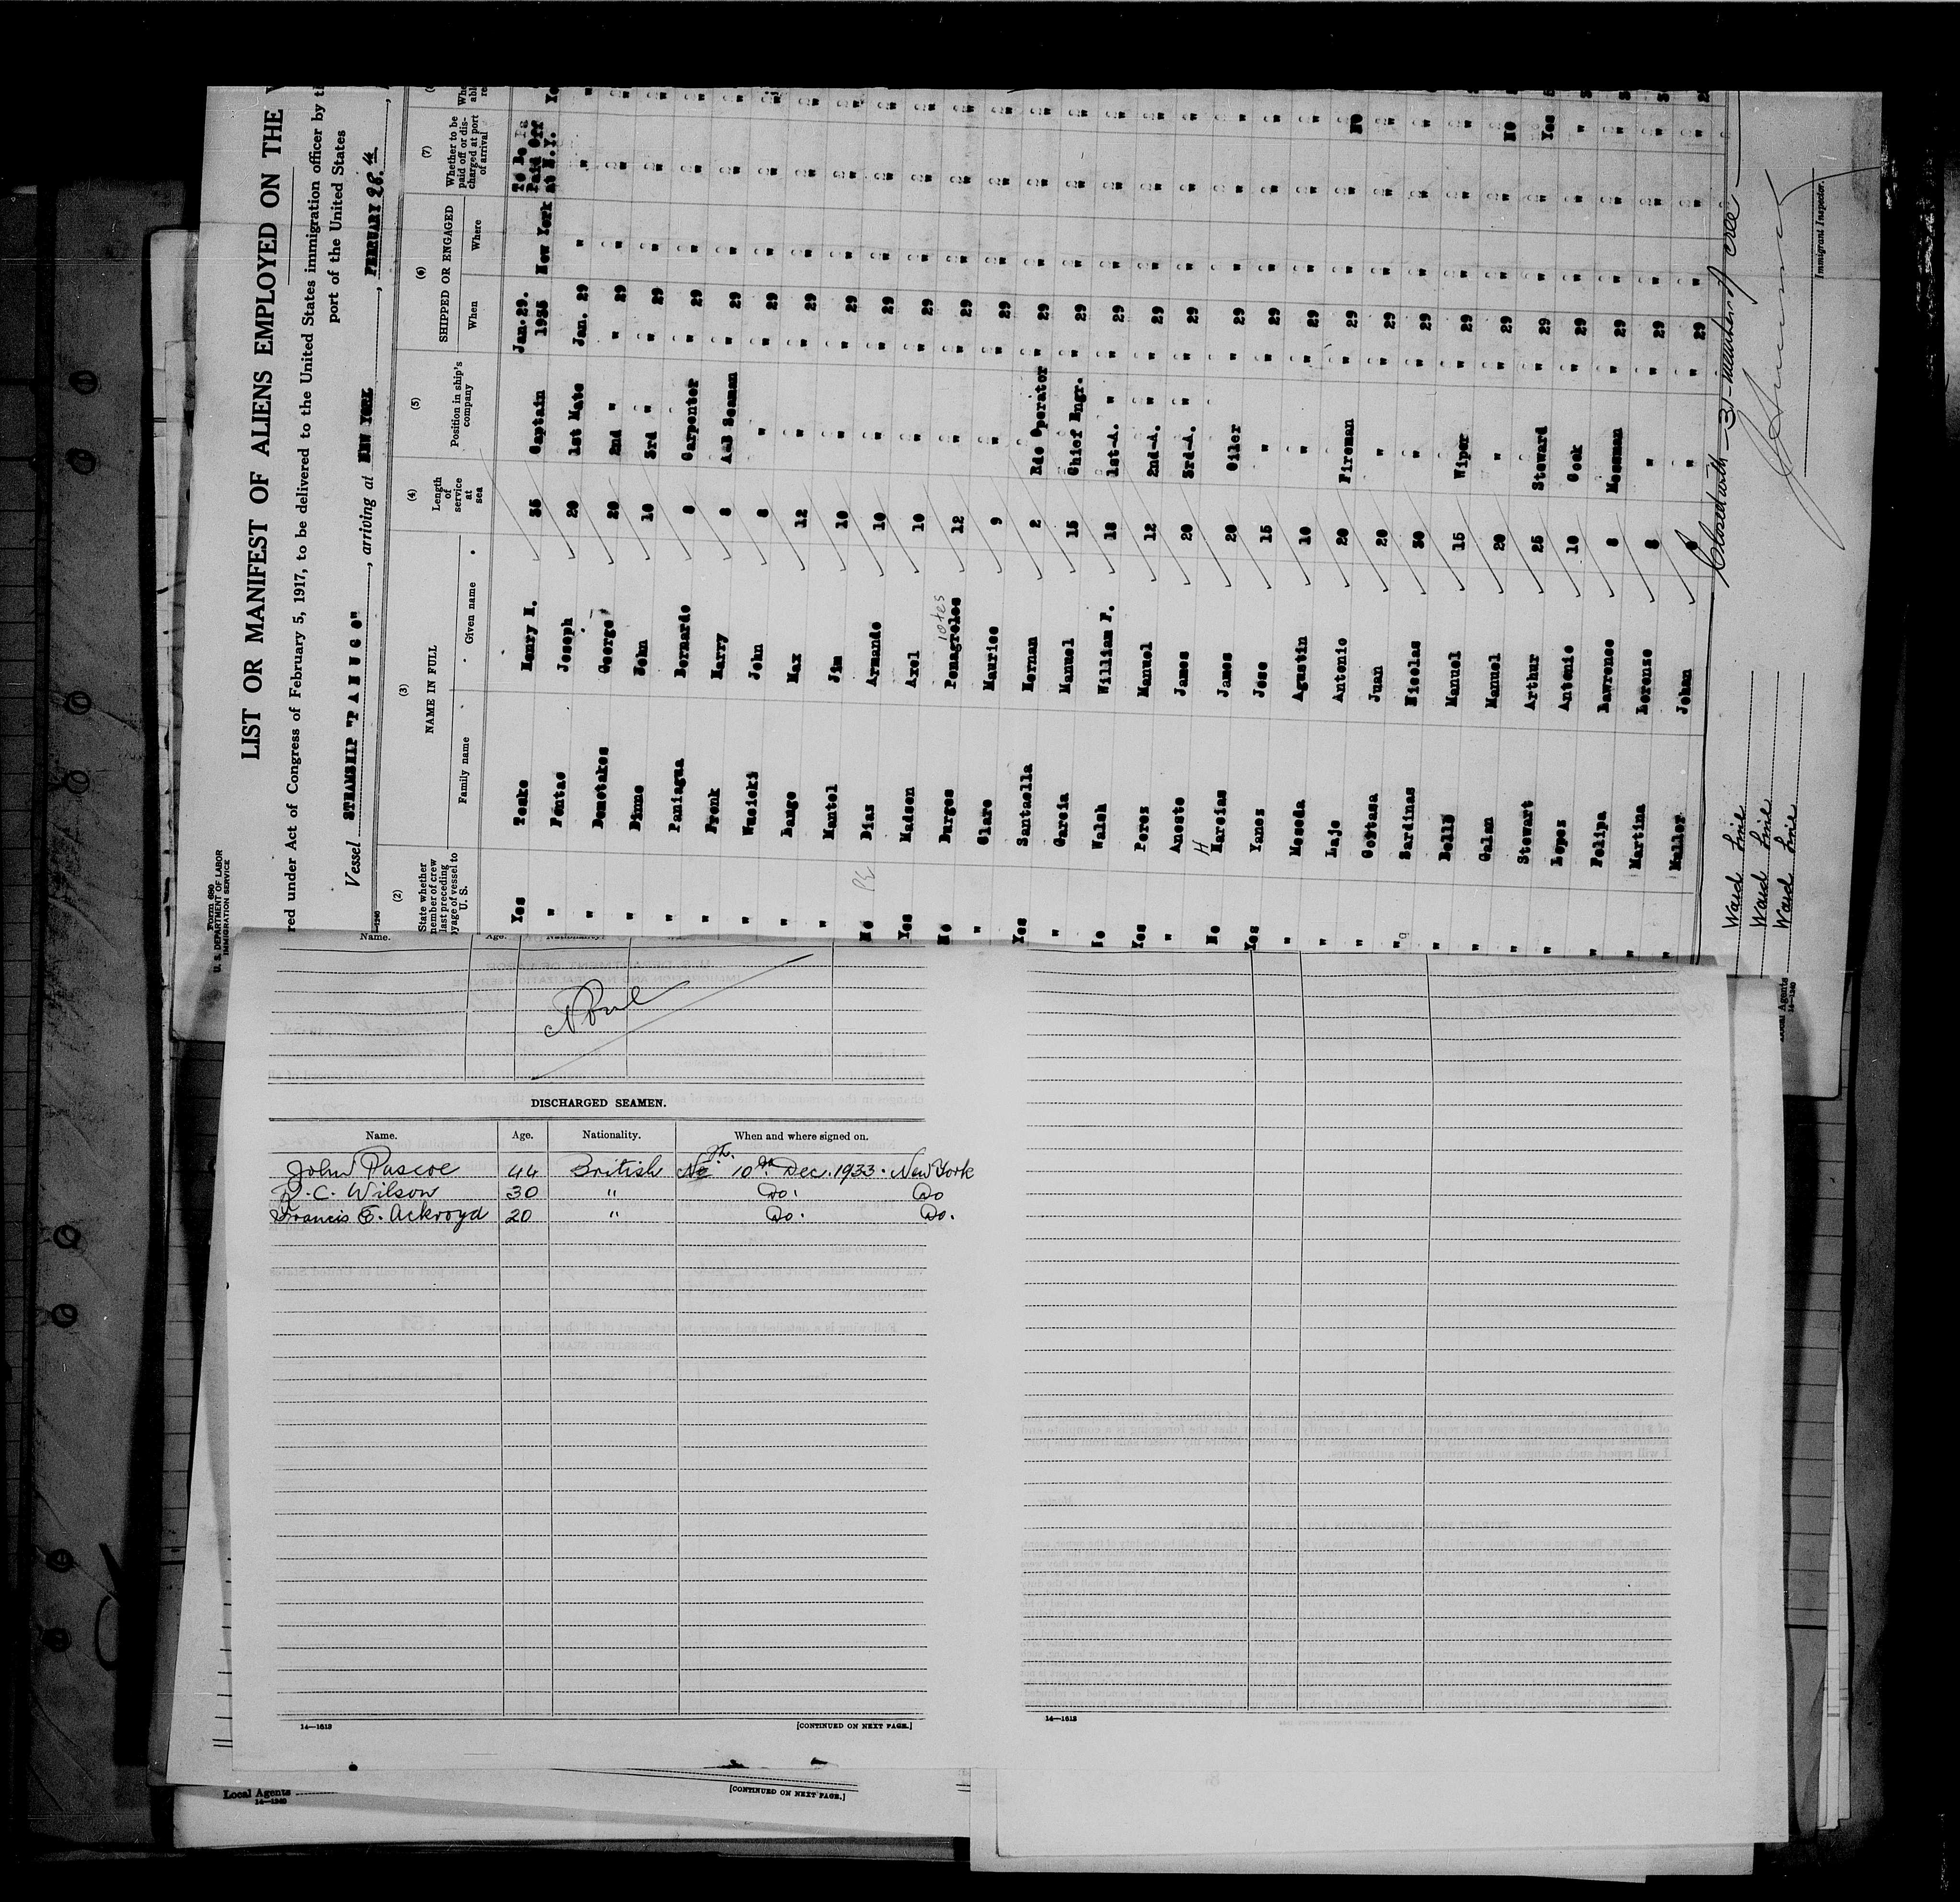 Form 680
U. S. DEPARTMENT OF LABOR
IMMIGRATION SERVICE
LIST OR MANIFEST OF ALIENS EMPLOYED ON THE
red under Act of Congress of February 5, 1917, to be delivered to the United States immigration officer by
port of the United States
Vessel STEAMSHIP "PANUCO", arriving at NEW YORK, FEBRUARY 26.
(2) (3) (4) (5) (6) (7)
State whether member of crew last preceding voyage of vessel to U. S.
NAME IN FULL
Family name Given name
Length of service at sea
Position in ship's company
SHIPPED OR ENGAGED
When Where
Whether to be paid off or discharged at port of arrival
Yes Teske Henry I. 35 Captain Jan. 29. 1935 New York To Be Paid Off at N.Y.
" Joseph 20 1st Mate Jan. 29 " "
" Demetakes George 20 2nd " " 29 " "
" Dinne John 10 3rd " " 29 " "
" Paniagua Bernardo 8 Carpenter " 29 " "
" Frenk Harry 8 A&B Seaman " 29 " "
" Wucicki John 8 " " 29 " "
" Bange Max 12 " " 29 " "
" Mantel Jim 10 " " 29 " "
No Dias Armando 10 " " 29 " "
Yes Madsen Axel 10 " " 29 " "
No Burges 12 " " 29 " "
" Clare Maurice 9 " " 29 " "
Yes Santaella Hernan 2 Rdo Operator " 29 " "
" Garcia Manuel 15 Chief Engr. " 29 " "
No Walsh William F. 18 1st-A. " " 29 " "
Yes Perez Manuel 12 2nd-A. " " 29 " "
" Aneste James 20 3rd-A. " " 29 " "
No Harcias James 20 Oiler " 29 " "
Yes Yanez Jose 15 " " 29 " "
" Meseda Agustin 10 " " 29 " "
" Laje Antonio 20 Fireman " 29 " "
" Juan 20 " " 29 " "
" Sardinas Nicolas 30 " " 29 " "
" Manuel 15 Wiper " 29 " "
" Galan Manuel 20 " " 29 " "
" Stewart Arthur 25 Steward " 29 " "
" Lopez Antonio 10 Cook " 29 " "
" Felipa Lawrence 8 Messman " 29 " "
" Martina Lorenzo 8 " " 29 " "
" Muller Johan " " 29 " "
Closed with - 31 - members of crew
Immigrant Inspector.
Ward Line
Ward Line
Ward Line
Local Agents
14—1240
Name. Age.
None
DISCHARGED SEAMEN.
Name. Age. Nationality. When and where signed on.
John Pascoe 44 British 10th Dec. 1933. New York
C. Wilson 30 " Do. Do
Francis E. Ackroyd 20 " Do. Do.
14—1613
[CONTINUED ON NEXT PAGE.]
14—1613
Local Agents
14—1240
[CONTINUED ON NEXT PAGE.]